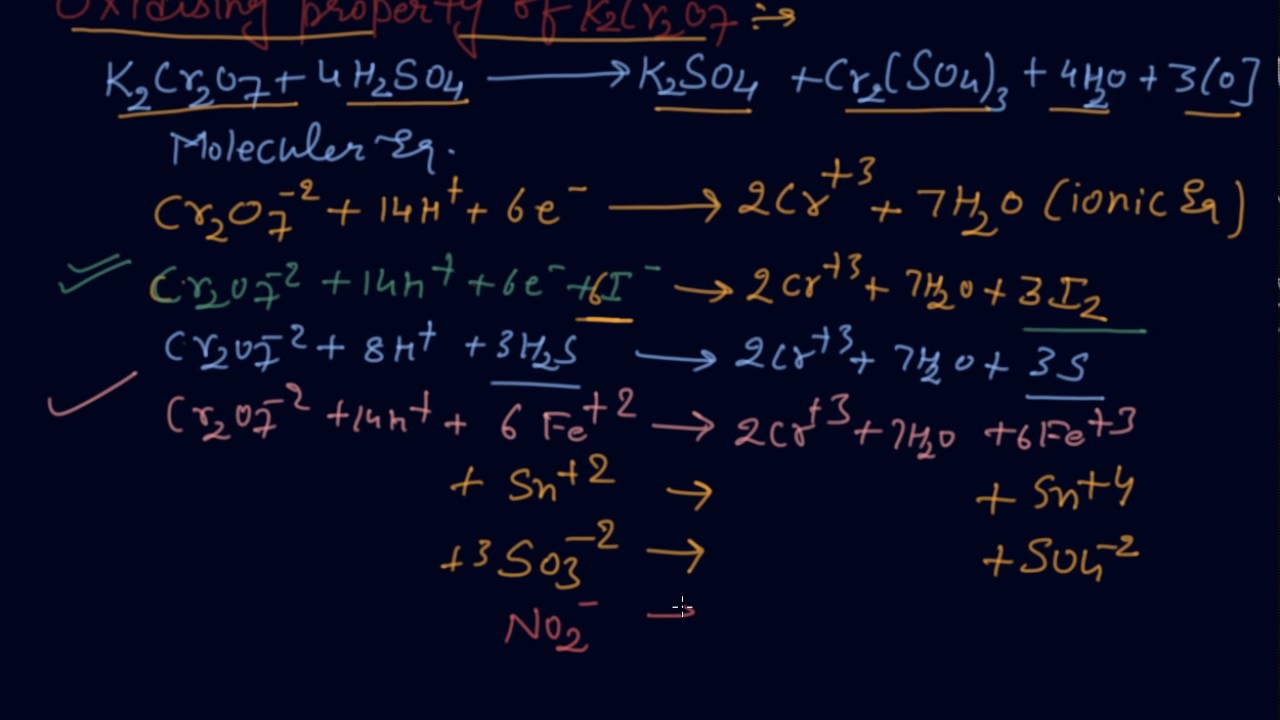 Oxidising property of K2Cr2O7 :→
K2Cr2O7 + 4H2SO4 → K2SO4 + Cr2(SO4)3 + 4H2O + 3[O]
Moleculer Eq.
Cr2O7^-2 + 14H^+ + 6e^- → 2Cr^+3 + 7H2O (ionic Eq)
Cr2O7^-2 + 14H^+ + 6e^- + 6I^- → 2Cr^+3 + 7H2O + 3I2
Cr2O7^-2 + 8H^+ + 3H2S → 2Cr^+3 + 7H2O + 3S
Cr2O7^-2 + 14H^+ + 6Fe^+2 → 2Cr^+3 + 7H2O + 6Fe^+3
+ Sn^+2 → + Sn^+4
+ 3SO3^-2 → + SO4^-2
NO2^- →